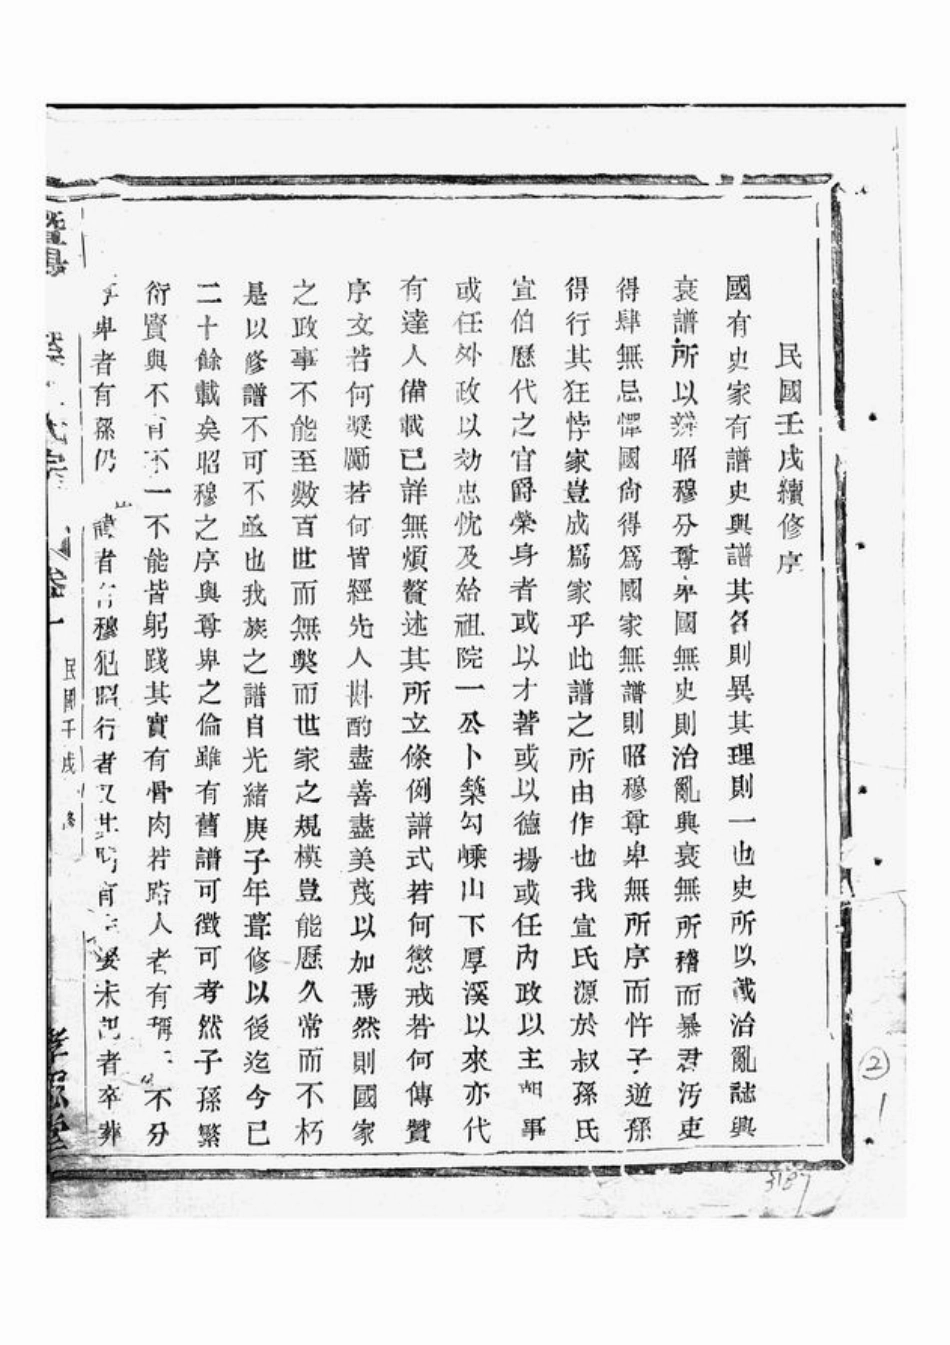 民國壬戌續修序
國有史家有譜史與譜其名則異其理則一也史所以載治亂誌興
衰譜所以辨昭穆分尊卑國無史則治亂興衰無所稽而暴君污吏
得肆無忌憚國尙得爲國家無譜則昭穆尊卑無所序而忤子逆孫
得行其狂悖家豈成爲家乎此譜之所由作也我宣氏源於叔孫氏
宣伯歷代之官爵榮身者或以才著或以德揚或任內政以主 事
或任外政以効忠忱及始祖院一公卜築勾嵊山下厚溪以來亦代
有達人備載已詳無煩贅述其所立條例譜式若何懲戒若何傳贊
序文若何奬勵若何皆經先人斟酌盡善盡美茂以加焉然則國家
之政事不能至數百世而無獘而世家之規模豈能歷久常而不朽
是以修譜不可不亟也我族之譜自光緒庚子年葺修以後迄今已
二十餘載矣昭穆之序與尊卑之倫雖有舊譜可徵可考然子孫繁
衍賢與不肖不一不能皆躬踐其實有骨肉若路人者有稱 不分
卑者有孫仍 諱者 穆犯昭行者又 娶未 者卒葬
卷一
民國壬戌 修
孝思堂
3187
② 1